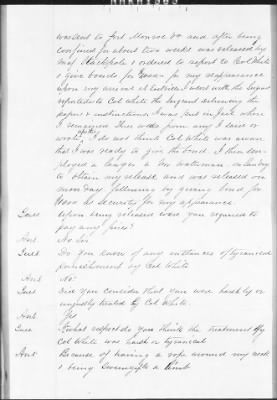 was sent to Fort Monroe Va and after being
confined for about two weeks was released by
Maj Stackpole & ordered to report to Col White
& give bonds for for my appearance
upon my arrival at I went with the Sergeant
reported to Col White the Sergeant delivering the
papers & instructions. I was put in Jail where
I remained three weeks from any I have
wrote after I do not think Col White was aware
that I was ready to give the bond. I then em-
ployed a lawyer a Mr Waterman on Sunday
to obtain my release and was released on
monday following by giving bond for
as security for my appearance.
Ques Upon being released were you required to
pay any fines?
Ans No Sir
Ques Do you know of any instances of tyranical
punishment by Col White
Ans No.
Ques Did you consider that you were harshly or
unjustly treated by Col White.
Ans Yes
Ques What respect do you think the treatment of
Col White was harsh or tyranical
Ans Because of having a rope around my neck
& being swung to a limb